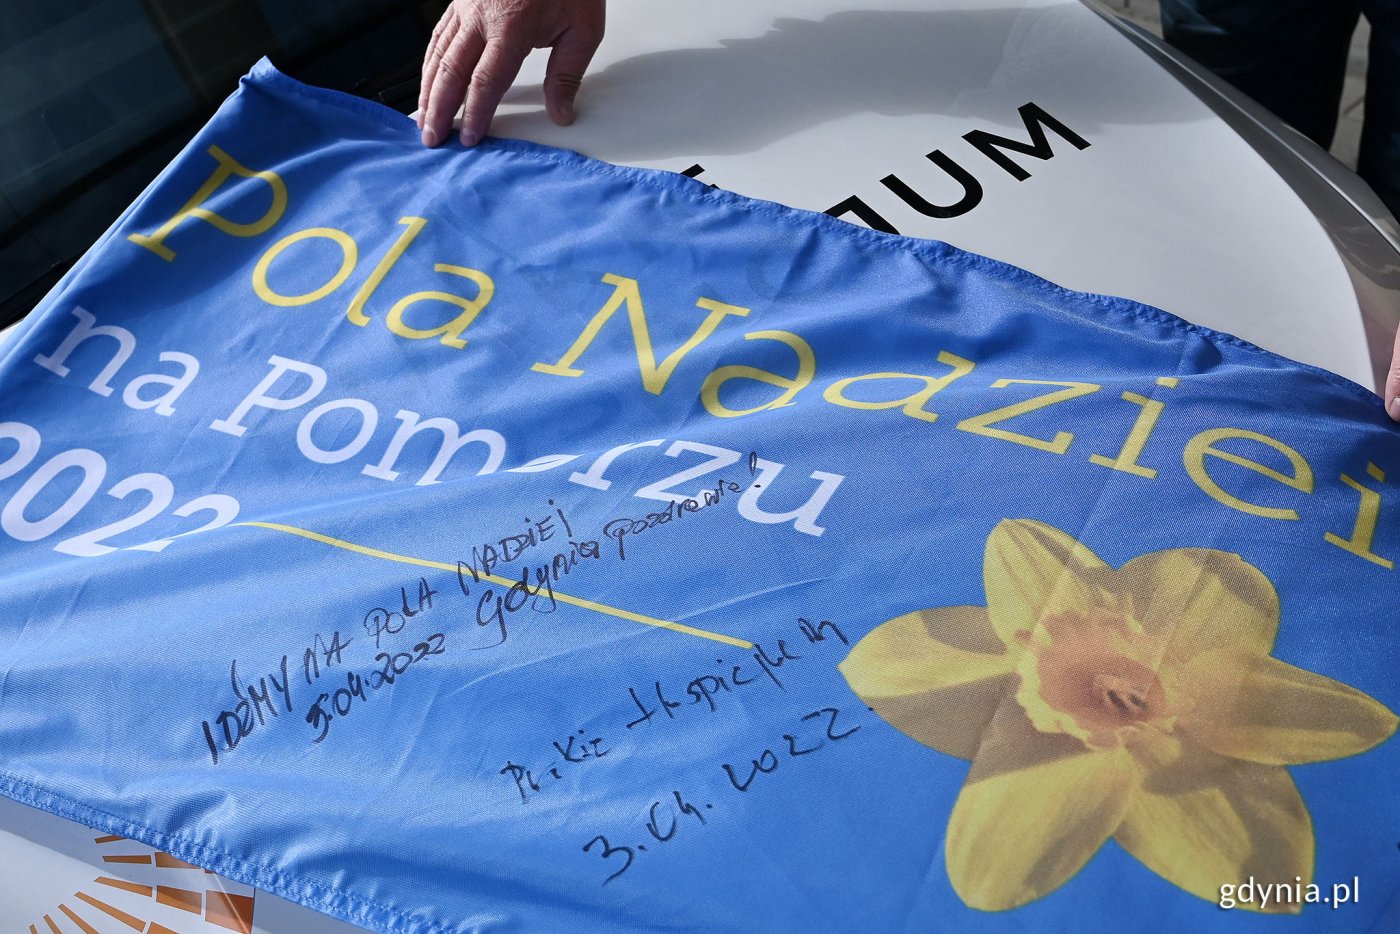 UM
Pola Nadziei
na Pomorzu
2022
IDZIEMY NA POLA NADZIEJ
5.04.2022 Gdynia pozdrawia!
3.04.2022.
gdynia.pl